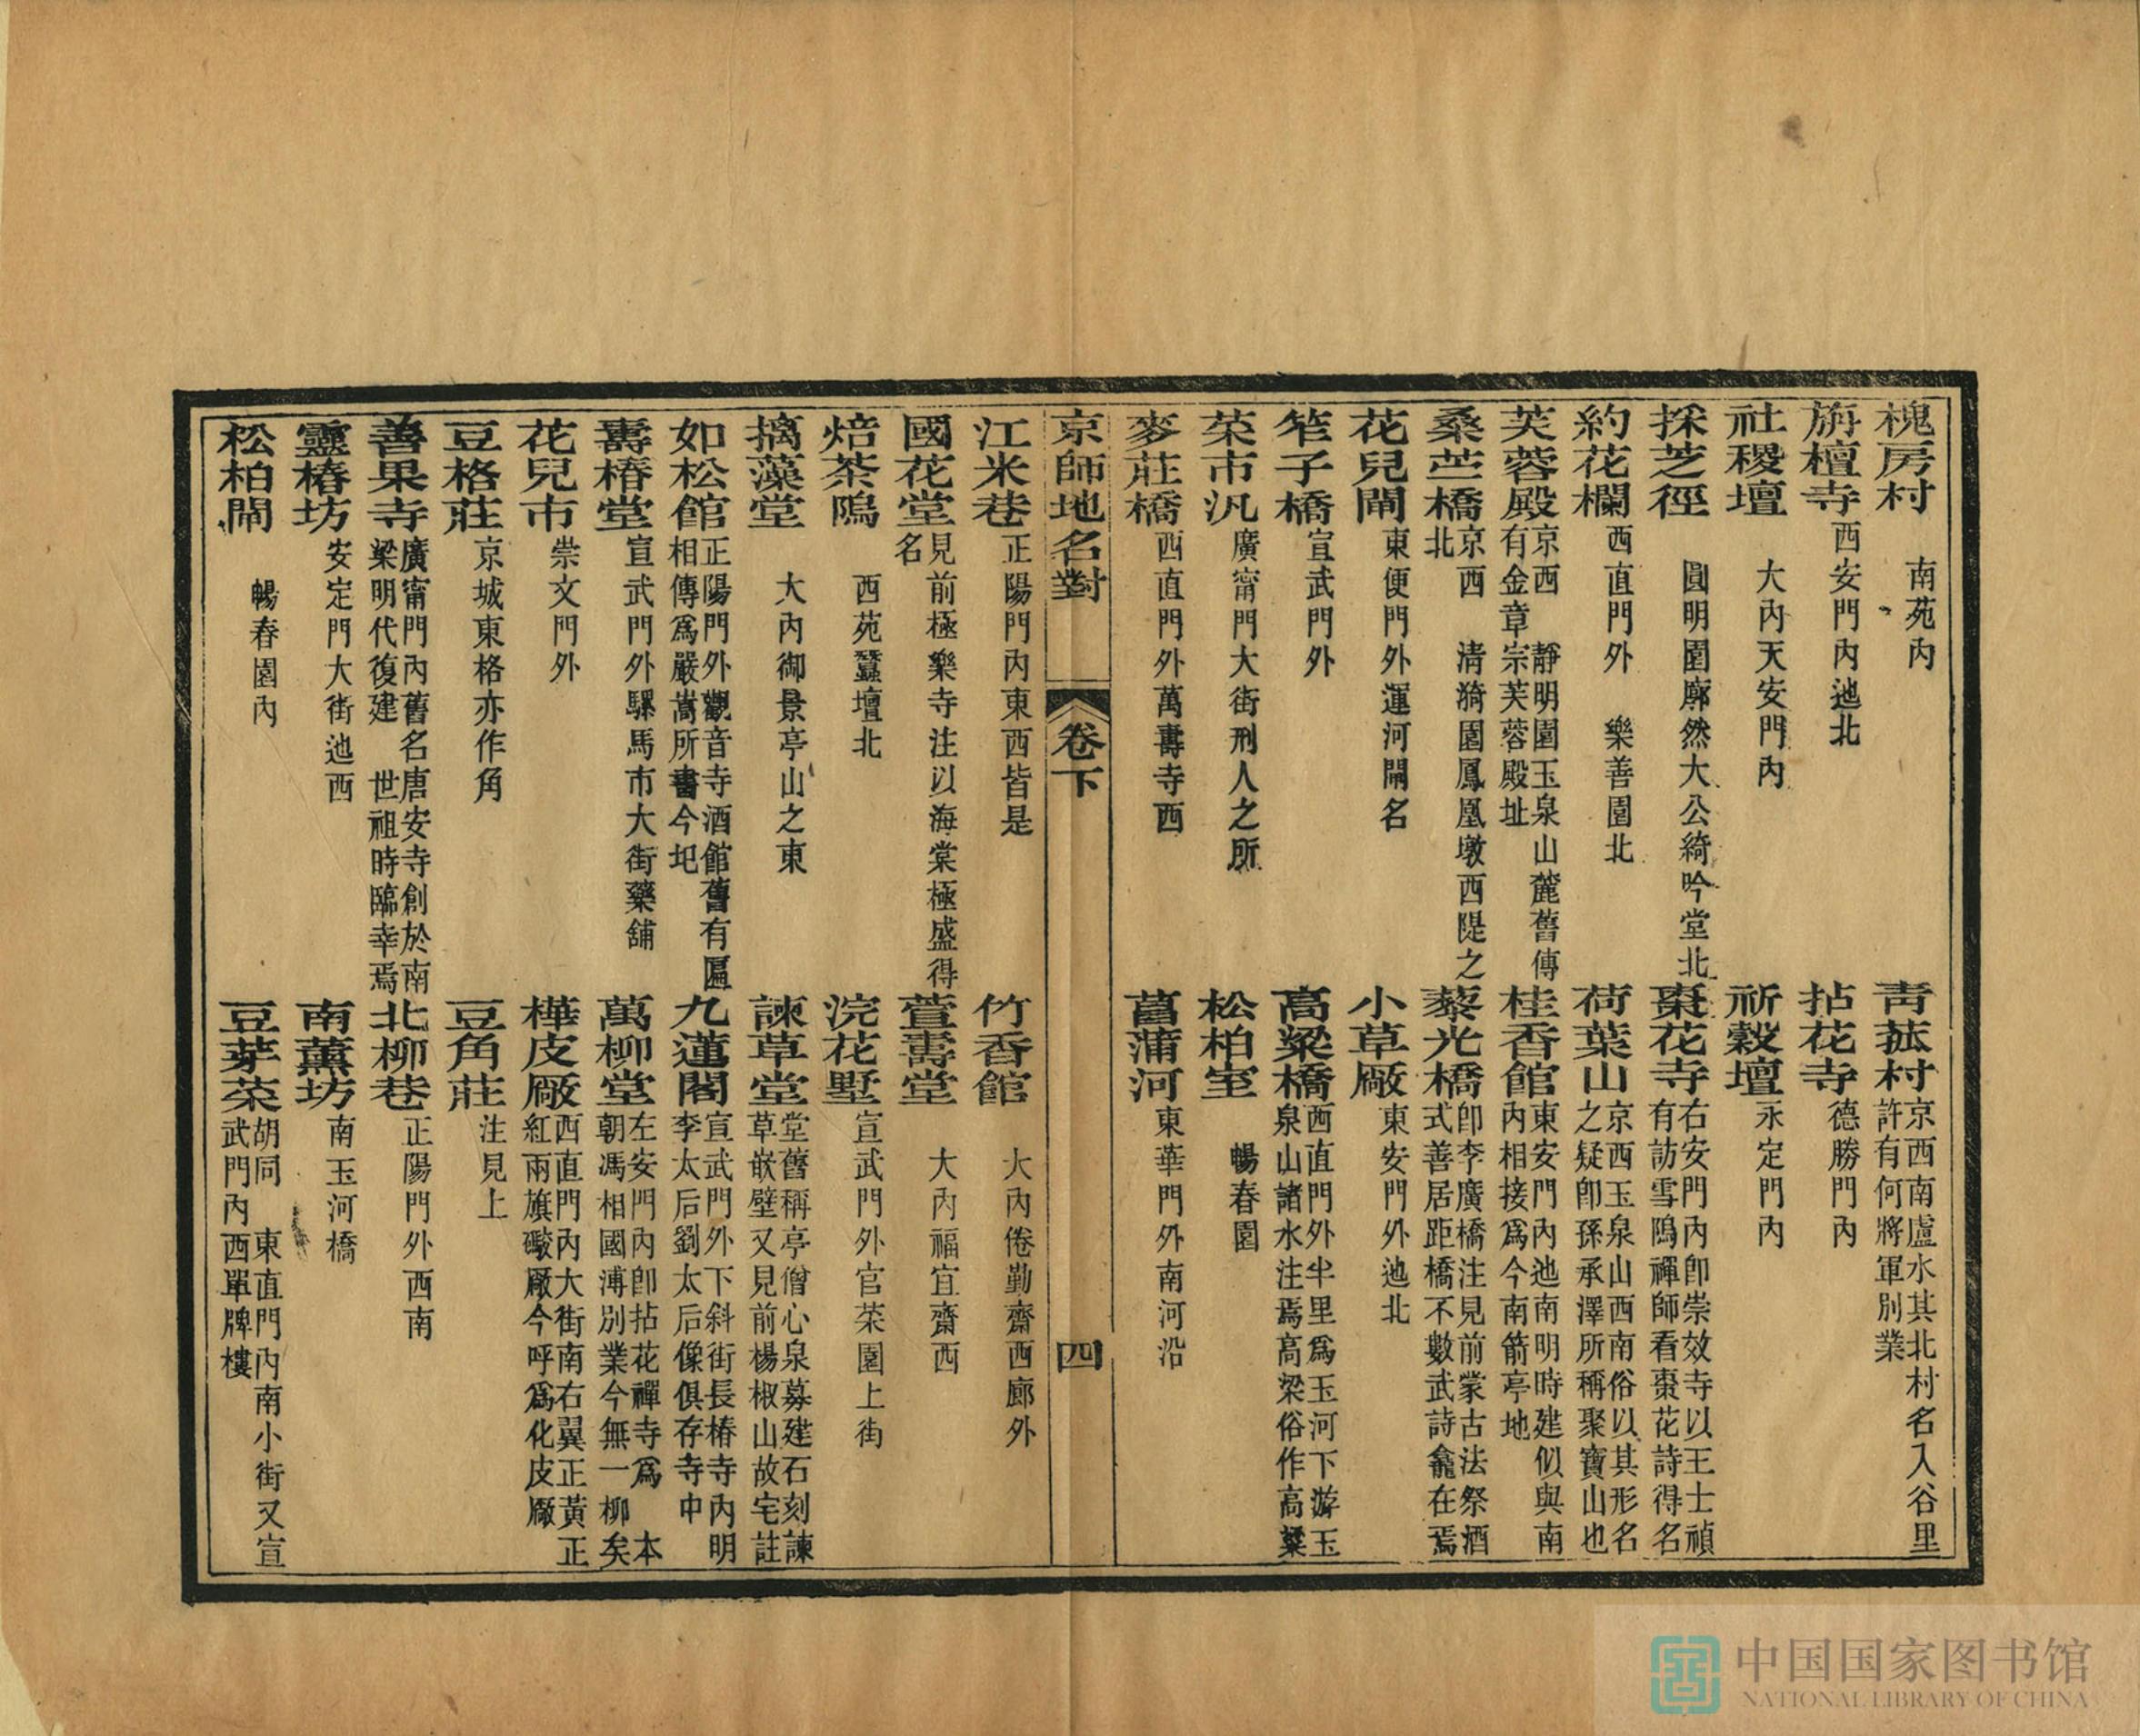 槐房村 南苑內 青菰村 京西南盧水其北村名入谷里許有何將軍別業
旃檀寺 西安門內迤北 拈花寺 德勝門內
社稷壇 大內天安門內 祈穀壇 永定門內
採芝徑 圓明園廓然大公綺吟堂北 棗花寺 右安門內卽崇效寺以王士禎有訪雪隖禪師看棗花詩得名
約花欄 西直門外 樂善園北 荷葉山 京西玉泉山西南俗以其形名之疑卽孫承澤所稱聚寶山也
芙蓉殿 京西 靜明園玉泉山麓舊傳有金章宗芙蓉殿址 桂香館 東安門內迤南明時建似與南內相接爲今南箭亭地
桑苎橋 京西 清漪園鳳凰墩西隄之北 藜光橋 卽李廣橋注見前蒙古法祭酒式善居距橋不數武詩龕在焉
花兒閘 東便門外運河閘名 小草廠 東安門外迤北
笮子橋 宣武門外 高梁橋 西直門外半里爲玉河下游玉泉山諸水注焉高梁俗作高粱
菜市汛 廣甯門大街刑人之所 松柏室 暢春園
麥莊橋 西直門外萬壽寺西 菖蒲河 東華門外南河沿
京師地名對 卷下 四
江米巷 正陽門內東西皆是 竹香館 大內倦勤齋西廊外
國花堂 見前極樂寺注以海棠極盛得名 萱壽堂 大內福宜齋西
焙茶隖 西苑蠶壇北 浣花墅 宣武門外官菜園上街
摛藻堂 大內御景亭山之東 諫草堂 堂舊稱亭僧心泉募建石刻諫草嵌壁又見前楊椒山故宅註
如松館 正陽門外觀音寺酒館舊有匾相傳爲嚴嵩所書今圮 九蓮閣 宣武門外下斜街長椿寺內明李太后劉太后像俱存寺中
壽椿堂 宣武門外騾馬市大街藥舖 萬柳堂 左安門內卽拈花禪寺爲 本朝馮相國溥別業今無一柳矣
花兒市 崇文門外 樺皮廠 西直門內大街南右翼正黃正紅兩旗礮廠今呼爲化皮廠
豆格莊 京城東格亦作角 豆角莊 注見上
善果寺 廣甯門內舊名唐安寺創於南梁明代復建 世祖時臨幸焉 北柳巷 正陽門外西南
靈椿坊 安定門大街迤西 南薰坊 南玉河橋
松柏閘 暢春園內 豆芽菜 胡同 東直門內南小街又宣武門內西單牌樓
中国国家图书馆
NATIONAL LIBRARY OF CHINA